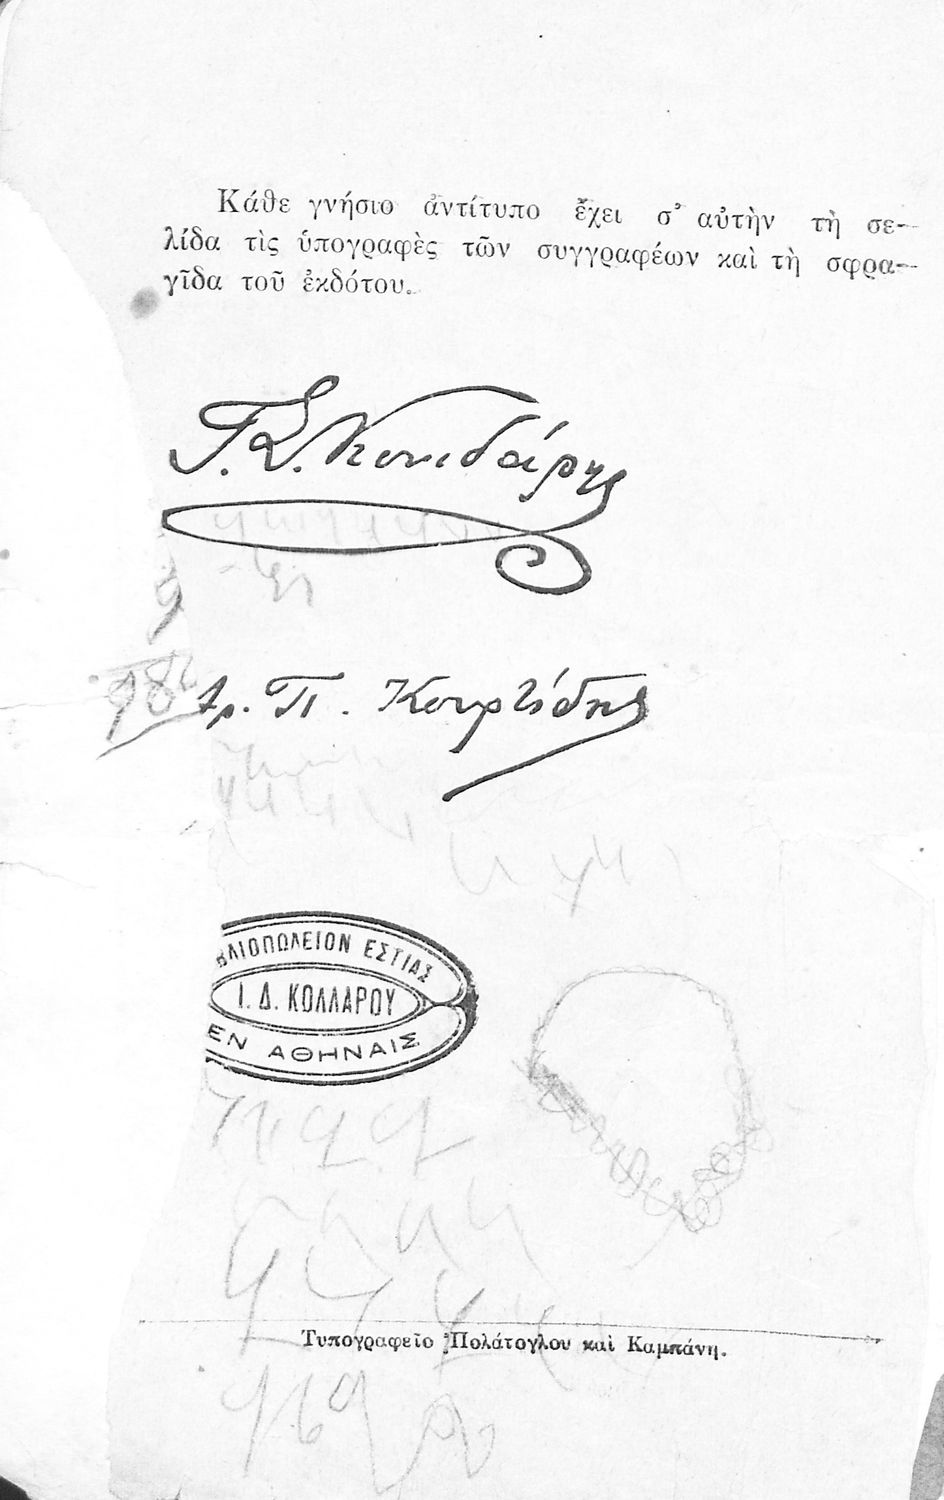 Κάθε γνήσιο ἀντίτυπο ἔχει σ' αὐτὴν τὴ σε-
λίδα τὶς ὑπογραφὲς τῶν συγγραφέων καὶ τὴ σφρα-
γῖδα τοῦ ἐκδότου.
Γ. Σ. Κονιδάρης
Ἀρ. Π. Κουρτίδης
ΒΛΙΟΠΩΛΕΙΟΝ ΕΣΤΙΑΣ
Ι. Δ. ΚΟΛΛΑΡΟΥ
ΕΝ ΑΘΗΝΑΙΣ
Τυπογραφεῖο Πολάτογλου καὶ Καμπάνη.